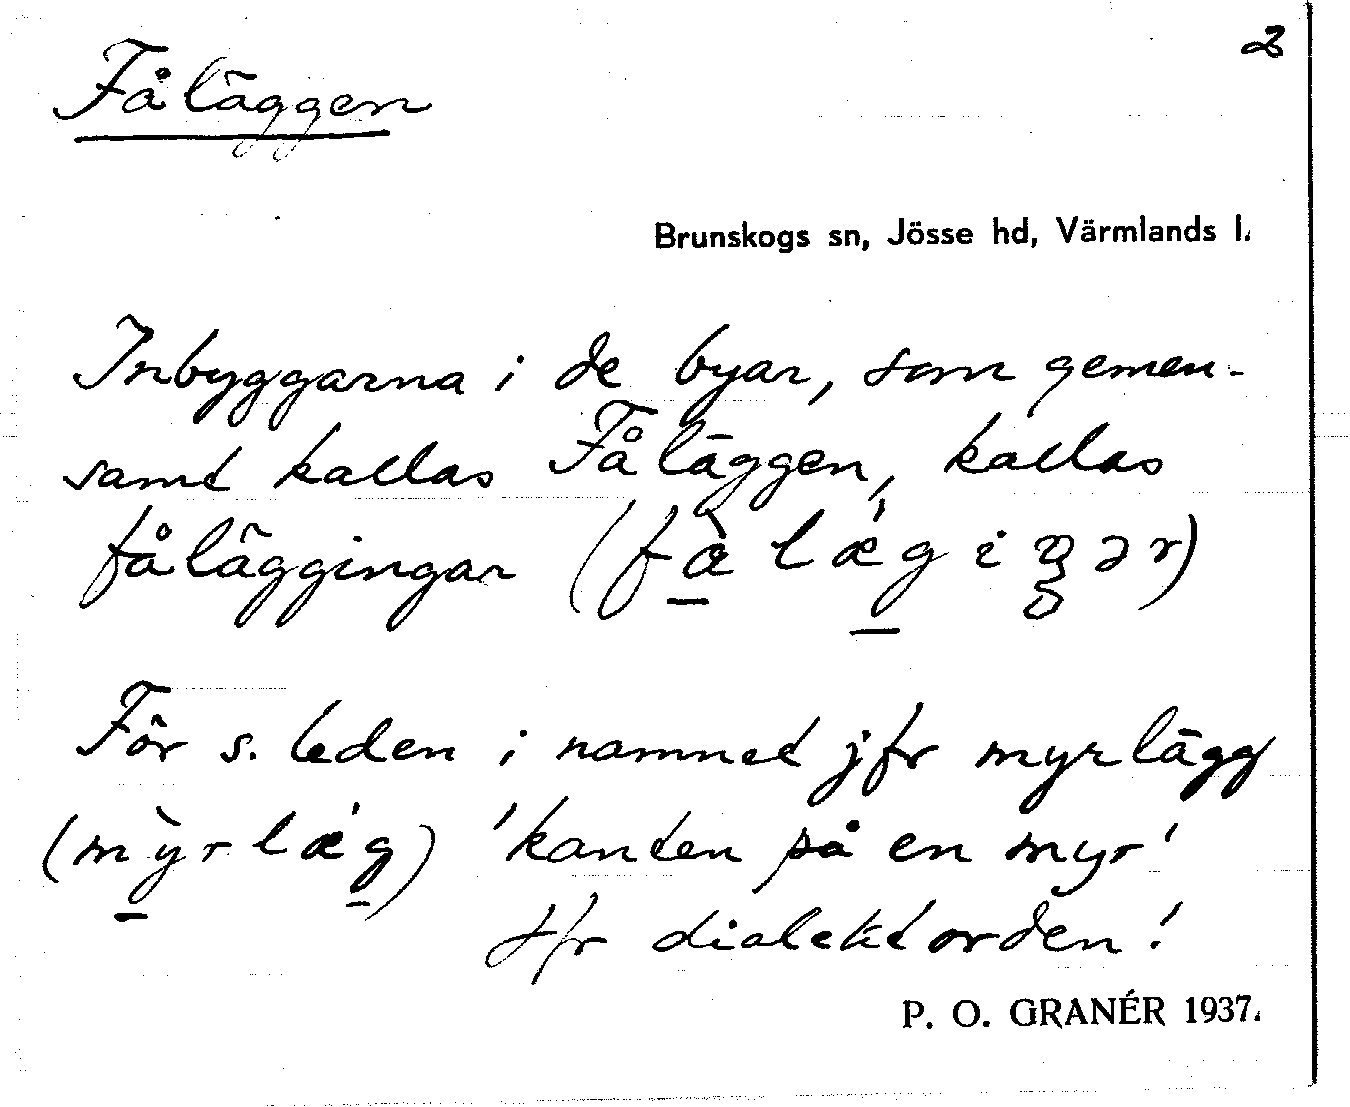 2
Fåläggen
Brunskogs sn, Jösse hd, Värmlands l.
Inbyggarna i de byar, som gemen-
samt kallas Fåläggen, kallas
fåläggingar (fà̠lǽ̠giŋər)
För s. leden i namnet jfr myrlägg
(mỳ̠rlǽ̠g) 'kanten på en myr'
Jfr dialektorden!
P. O. GRANÉR 1937.